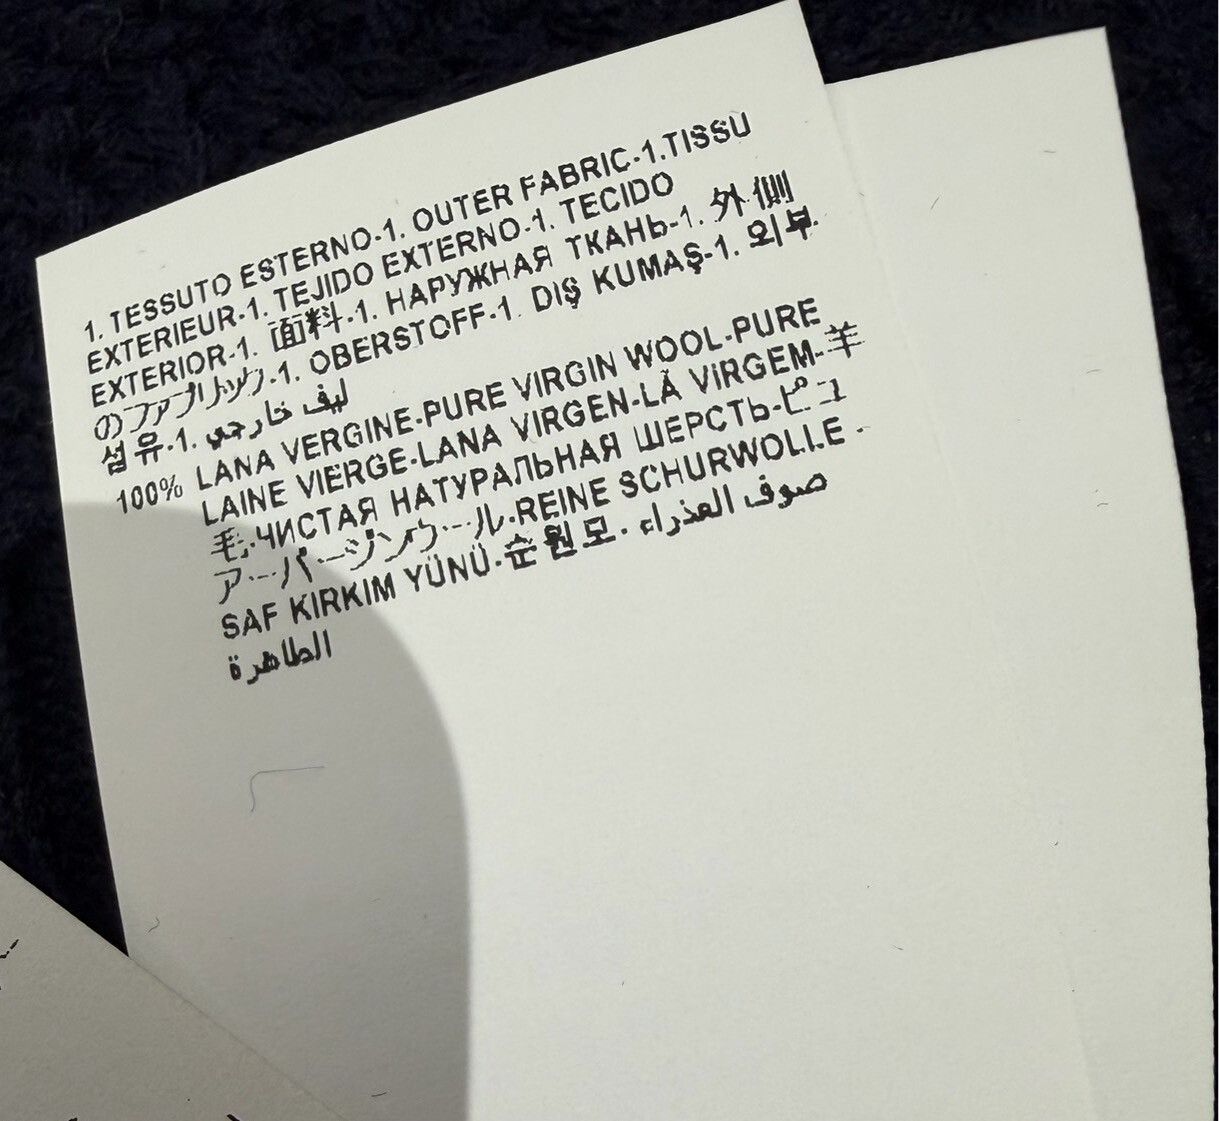 1. TESSUTO ESTERNO-1. OUTER FABRIC-1.TISSU
EXTERIEUR-1. TEJIDO EXTERNO-1. TECIDO
EXTERIOR-1. 面料-1. НАРУЖНАЯ ТКАНЬ-1. 外側
のファブリック-1. OBERSTOFF-1. DIŞ KUMAŞ-1. 외부
섬유-1. ليف خارجي
100% LANA VERGINE-PURE VIRGIN WOOL-PURE
LAINE VIERGE-LANA VIRGEN-LÃ VIRGEM-羊
毛-ЧИСТАЯ НАТУРАЛЬНАЯ ШЕРСТЬ-ピュ
ア-バージンウール-REINE SCHURWOLLE -
SAF KIRKIM YÜNÜ-순원모- صوف العذراء
الطاهرة